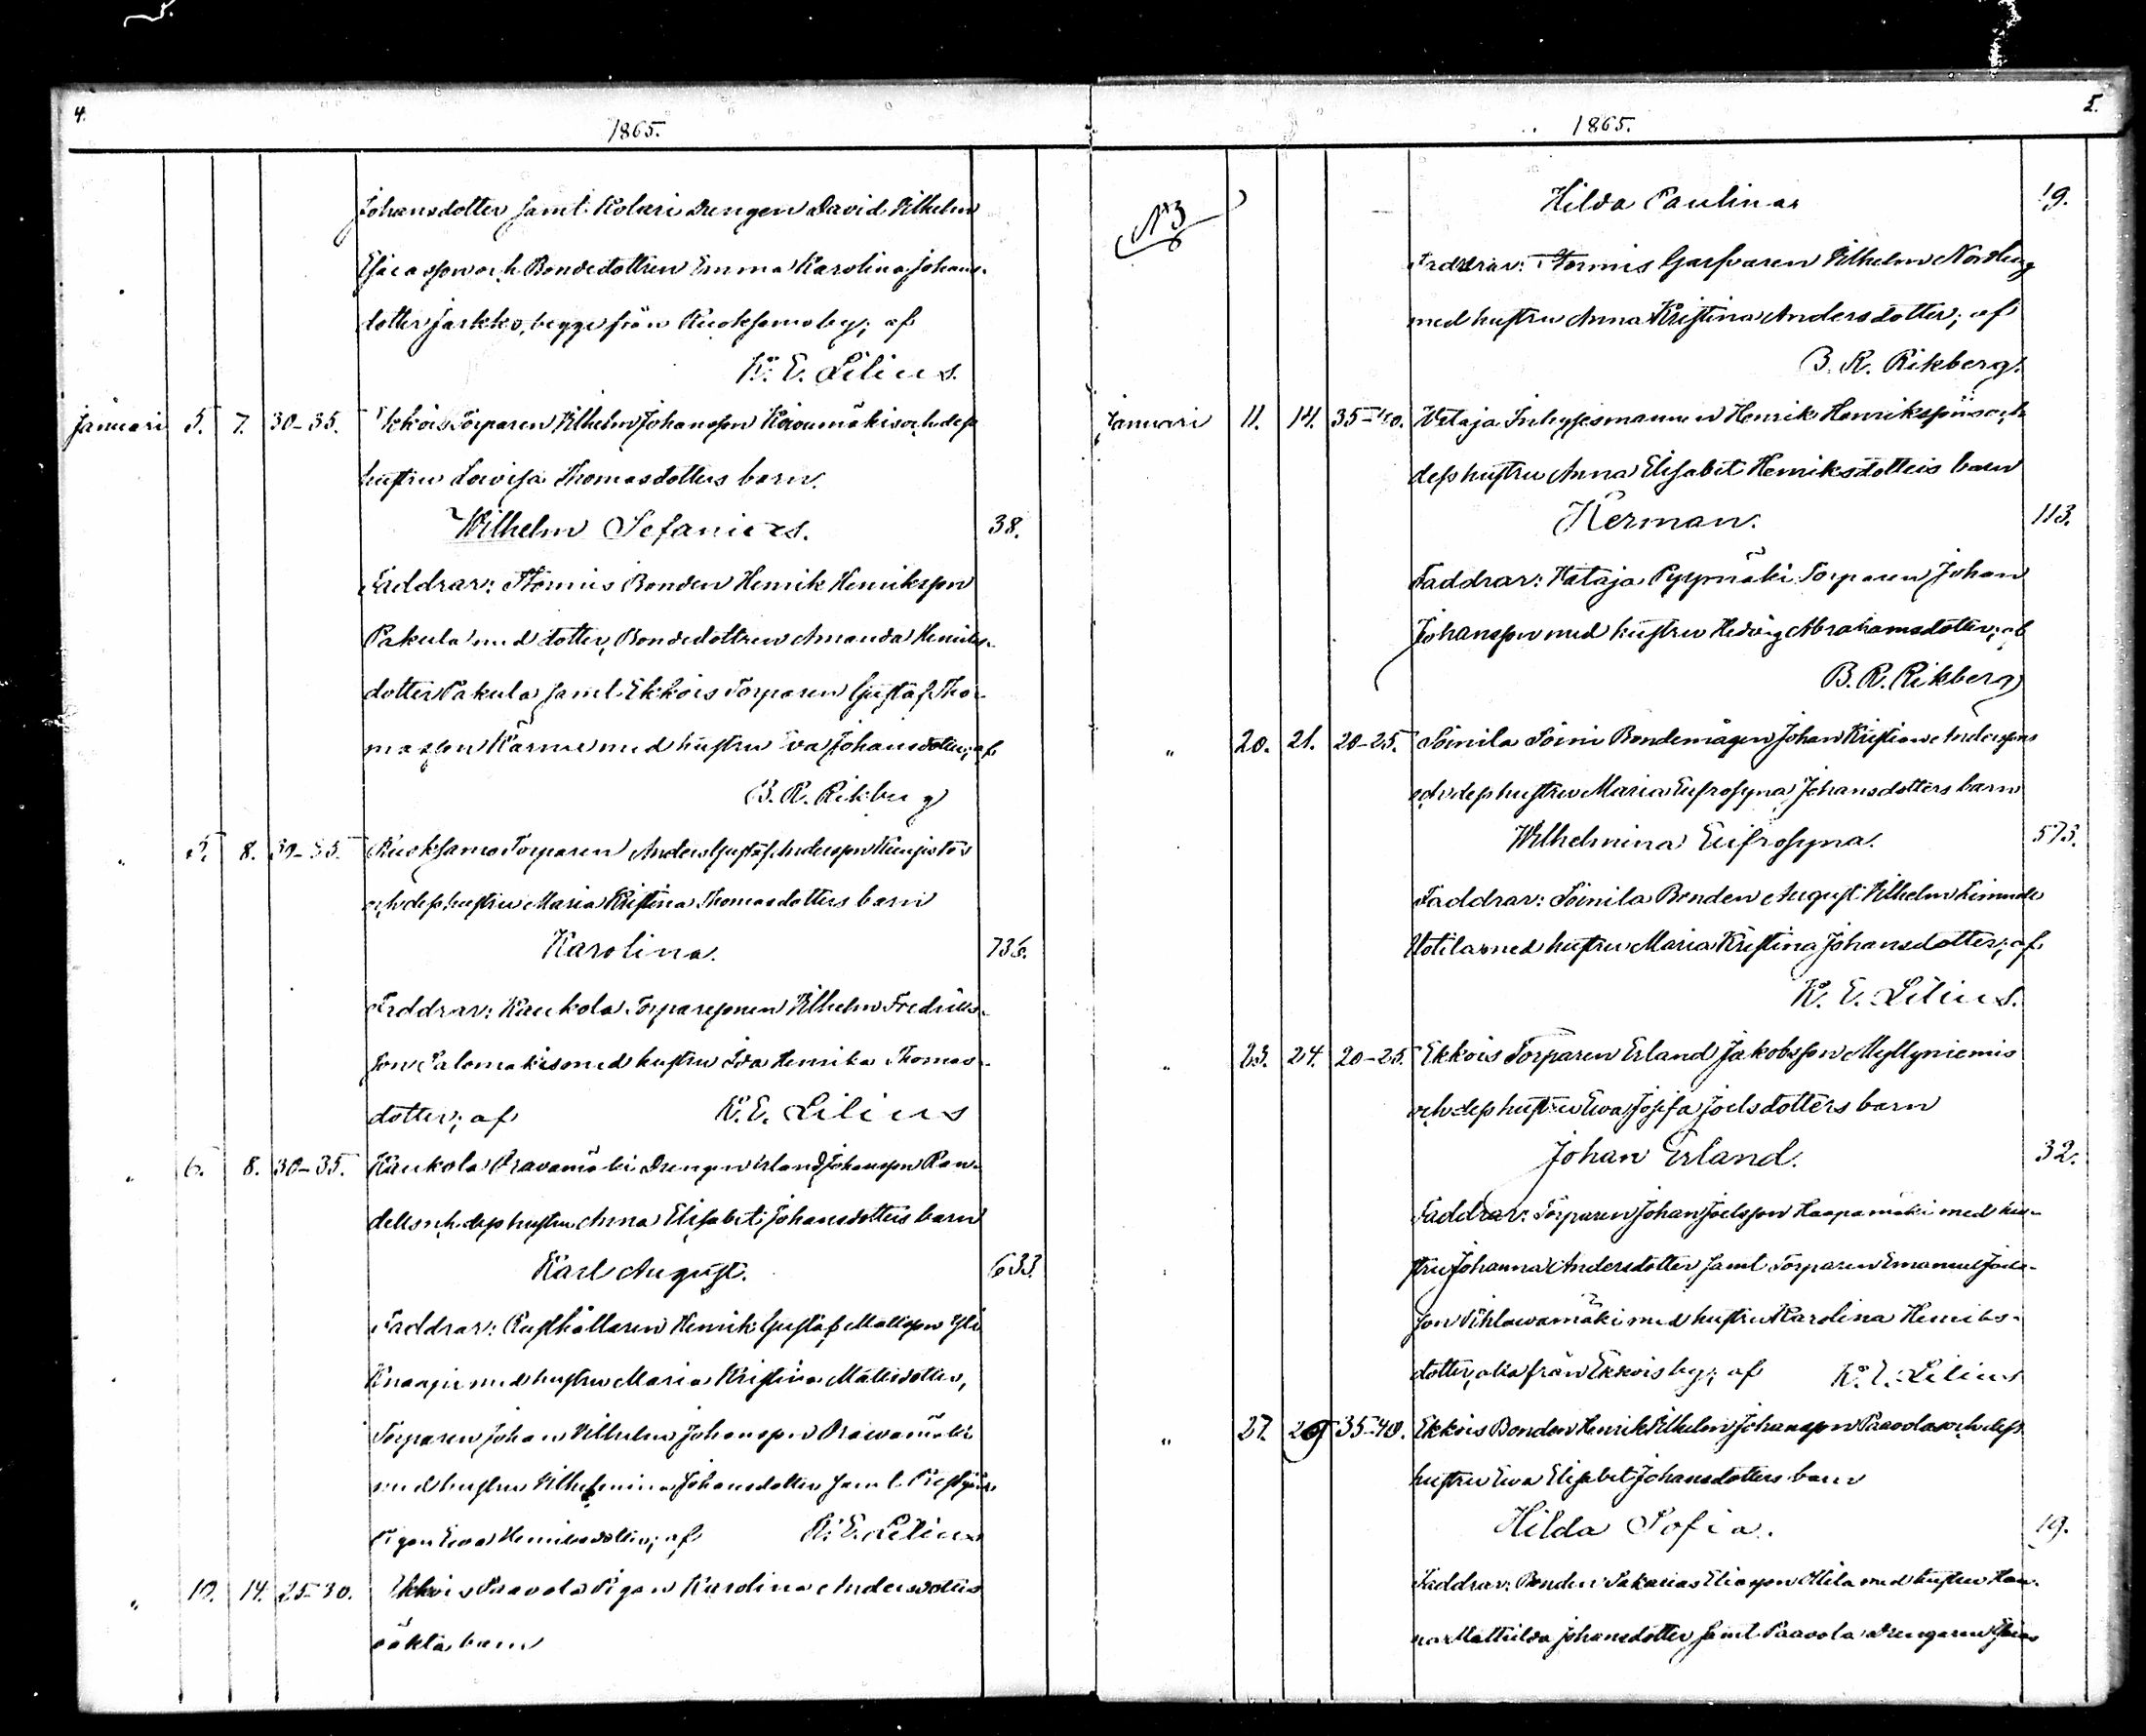 4.
1865.
Johansdotter samt Kolari Drengen David Vilhelm
Esaiasson och Bondedottren Emma Karolina Johans-
dotter Jaakko, begge från Ruoksamo by; af
K. E. Lilius.
Januari 5. 7. 30-35. Ekkois Torparen Vilhelm Johansson och dess
hustru Lovisa Thomasdotters barn.
Wilhelm Sefanias. 38.
Faddrar: Stormis Bonden Henrik Henriksson
Pakula med dotter, Bondedottren Amanda Henriks-
dotter Pakula samt Ekkois Torparen Gustaf Tho-
masson Kärme med hustru Eva Johansdotter; af
B. R. Rikberg
" 5. 8. 30-35. Ruoksamo Torparen Anders Gustaf Andersson
och dess hustru Maria Kristina Thomasdotters barn
Karolina. 736.
Faddrar: Kaukola Torparesonen Vilhelm Fredriks-
son Salomäki med hustru Ida Henrika Thomas-
dotter; af K. E. Lilius
" 6. 8. 30-35. Kaukola Oravamäki Drengen Erland Johansson Ran-
dells och dess hustru Anna Elisabet Johansdotters barn
Karl August. 633.
Faddrar: Rusthållaren Henrik Gustaf Mattsson Yli
Knaapi med hustru Maria Kristina Mattsdotter,
Torparen Johan Vilhelm Johansson Orawamäki
med hustru Vilhelmina Johansdotter samt
Pigan Ewa Henriksdotter; af K. E. Lilius
" 10. 14. 25-30. Ekkois Paavola Pigan Karolina Andersdotters
oäkta barn
5.
1865.
N 3
Hilda Paulina 19.
Faddrar: Stormis Garfvaren Vilhelm Nordberg
med hustru Anna Kristina Andersdotter; af
B. R. Rikberg.
Januari 11. 14. 35-40. Vataja Inhysesmannen Henrik Henrikssons och
dess hustru Anna Elisabet Henriksdotters barn
Herman. 113.
Faddrar: Vataja Pyymäki Torparen Johan
Johansson med hustru Hedvig Abrahamsdotter; af
B. R. Rikberg
" 20. 21. 20-25. Soinila Soini Bondemågen Johan Kristian Anderssons
och dess hustru Maria Eufrosyna Johansdotters barn
Wilhelmina Eufrosyna. 573.
Faddrar: Soinila Bonden August Vilhelm
Uotila med hustru Maria Kristina Johansdotter; af
K. E. Lilius.
" 23. 24. 20-25. Ekkois Torparen Erland Jakobsson Myllyniemis
och dess hustru Ewa Josefa Joelsdotters barn
Johan Erland. 32.
Faddrar: Torparen Johan Joelsson Haapamäki med hu-
stru Johanna Andersdotter samt Torparen Emanuel Joels-
son Vihlawamäki med hustru Karolina Henriks-
dotter, alla från Ekkois by; af K. E. Lilius
" 27. 29 35-40. Ekkois Bonden Henrik Vilhelm Johansson Paavolas och dess
hustru Ewa Elisabet Johansdotters barn
Hilda Sofia. 19.
Faddrar: Bonden Sakarias Eliasson Ottila med hustru Han-
na Mathilda Johansdotter samt Paavola Drengaren Esaias